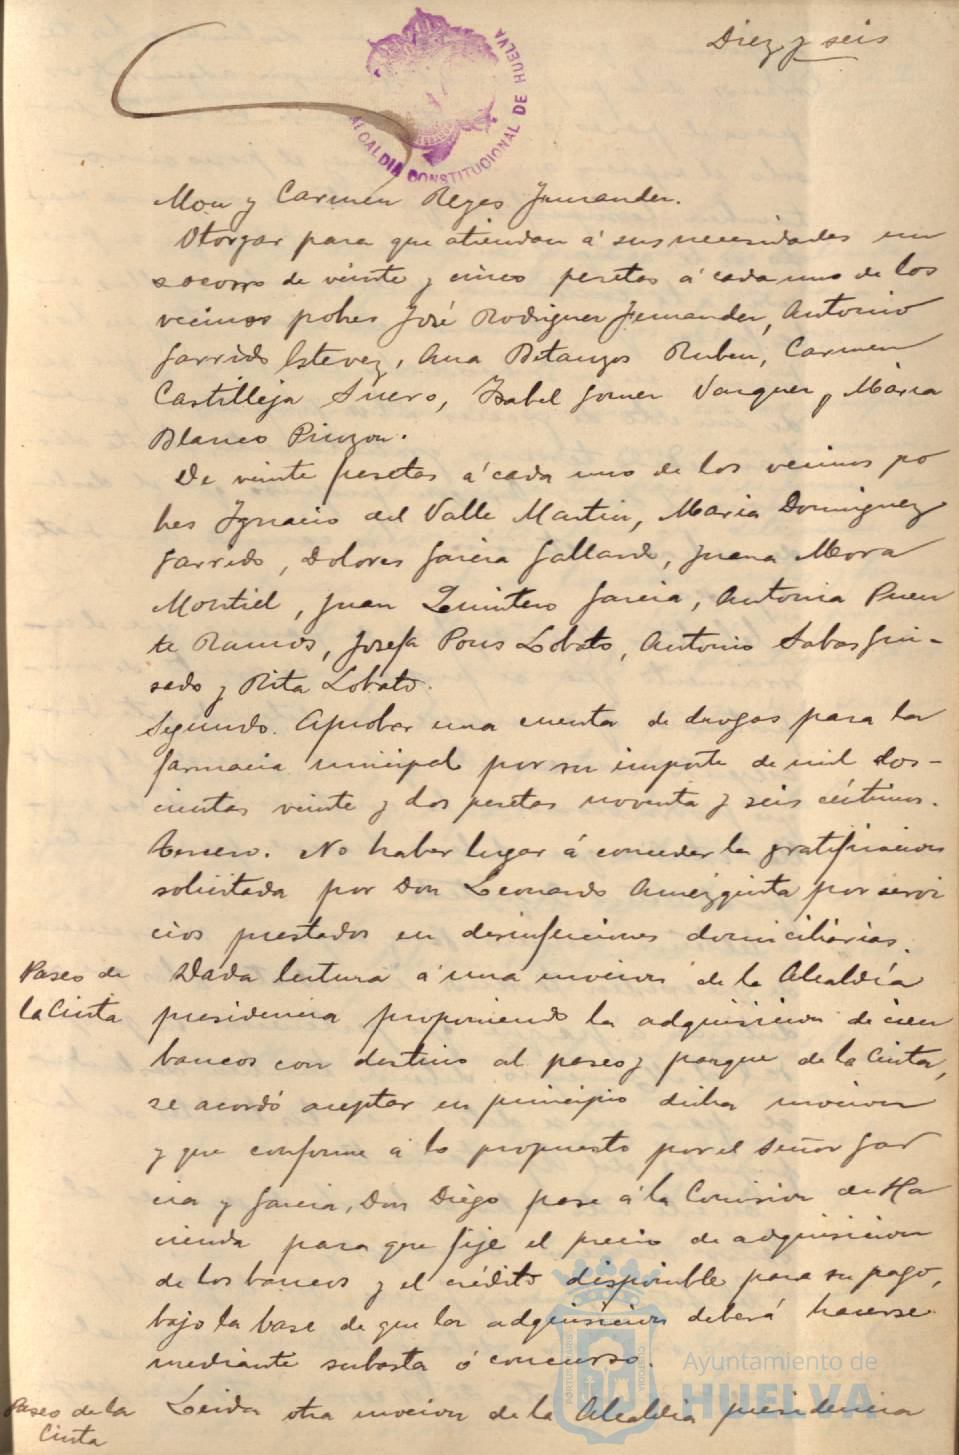 Diez y seis
ALCALDIA CONSTITUCIONAL DE HUELVA
Mon y Carmen Reyes Fernandez.
Otorgar para que atiendan á sus necesidades un
socorro de veinte y cinco pesetas á cada uno de los
vecinos pobres José Rodriguez Fernandez, Antonio
Garrido Estevez, Ana Betanzos Ruben, Carmen
Castilleja Suero, Isabel Gomez Vazquez y Maria
Blanco Pinzon.
De veinte pesetas á cada uno de los vecinos po
bres Ignacio del Valle Martin, Maria Dominguez
Garrido, Dolores Garcia Gallardo, Juana Mora
Montiel, Juan Quintero Garcia, Antonia Puen
te Ramos, Josefa Pons Lobato, Antonio Sabas Gui-
sado y Rita Lobato.
Segundo. Aprobar una cuenta de drogas para la
farmacia municipal por su importe de mil dos-
cientas veinte y dos pesetas noventa y seis céntimos.
Tercero. No haber lugar á conceder la gratificacion
solicitada por Don Leonardo Amezquita por servi
cios prestados en desinfecciones domiciliarias.
Paseo de
la Cinta
Dada lectura á una mocion de la Alcaldía
presidencia proponiendo la adquisicion de cien
bancos con destino al paseo y parque de la Cinta,
se acordó aceptar en principio dicha mocion
y que conforme á lo propuesto por el Señor Gar
cia y Garcia, Don Diego pase á la Comision de Ha
cienda para que fije el precio de adquisicion
de los bancos y el crédito disponible para su pago,
bajo la base de que la adquisicion deberá hacerse
mediante subasta ó concurso.
Paseo de la
Cinta
Leida otra mocion de la Alcaldia presidencia
Ayuntamiento de
HUELVA